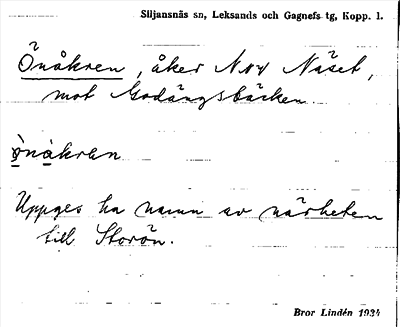 Siljansnäs sn, Leksands och Gagnefs tg, Kopp. l.
Önåkren, åker NNV Näset,
mot Godängsbäcken
ònåkrän
Uppges ha namn av närheten
till Storön.
Bror Lindén 1934